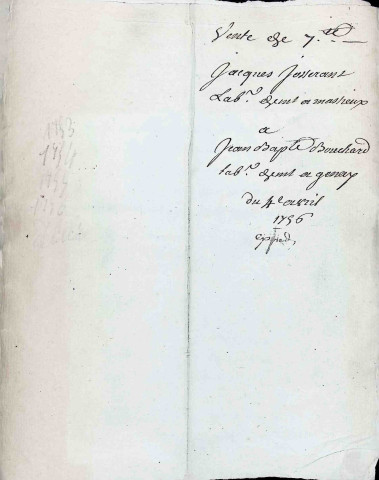 Vente de 7.
Jacques Josserant
Lab.r demt a massieux
a
Jean Bapte Bouchard
lab.r demt a genay
du 4e avril
1756
1953